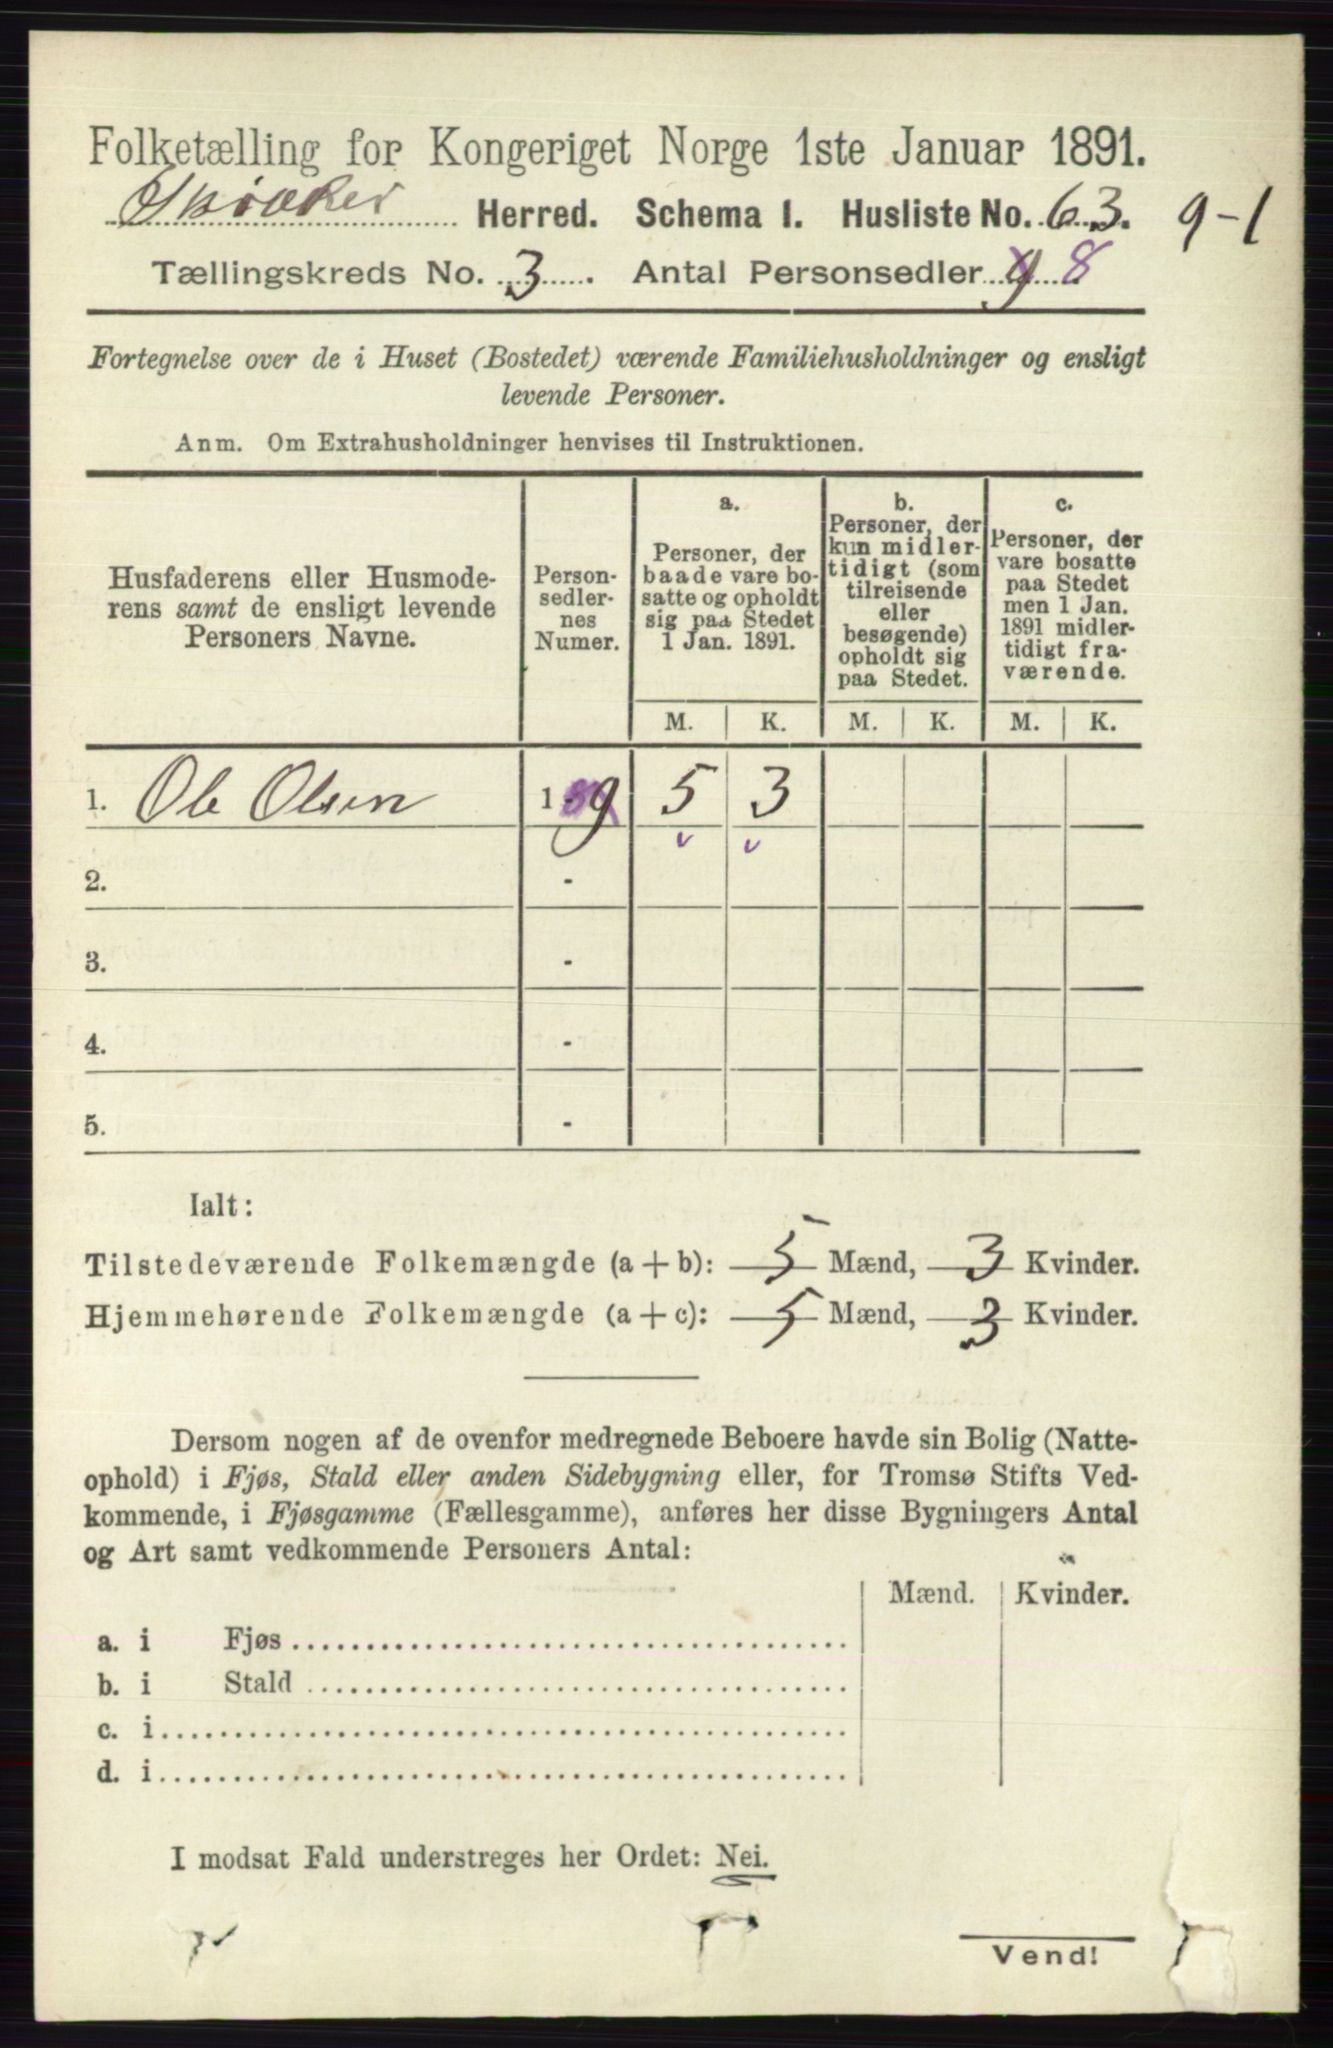 Folketælling for Kongeriget Norge 1ste Januar 1891.
Skiaker Herred. Schema I. Husliste No. 63. 9-1
Tællingskreds No. 3. Antal Personsedler 9 8
Fortegnelse over de i Huset (Bostedet) værende Familiehusholdninger og ensligt
levende Personer.
Anm. Om Extrahusholdninger henvises til Instruktionen.
Husfaderens eller Husmode-
rens samt de ensligt levende
Personers Navne.
Person-
sedler-
nes
Numer.
a.
Personer, der
baade vare bo-
satte og opholdt
sig paa Stedet
1 Jan. 1891.
b.
Personer, der
kun midler-
tidigt (som
tilreisende
eller
besøgende)
opholdt sig
paa Stedet.
c.
Personer, der
vare bosatte
paa Stedet
men 1 Jan.
1891 midler-
tidigt fra-
værende.
M. K. M. K. M. K.
1. Ole Olsen 1-9 5 3
2. -
3. -
4. -
5. -
Ialt:
Tilstedeværende Folkemængde (a + b): 5 Mænd, 3 Kvinder.
Hjemmehørende Folkemængde (a + c): 5 Mænd, 3 Kvinder.
Dersom nogen af de ovenfor medregnede Beboere havde sin Bolig (Natte-
ophold) i Fjøs, Stald eller anden Sidebygning eller, for Tromsø Stifts Ved-
kommende, i Fjøsgamme (Fællesgamme), anføres her disse Bygningers Antal
og Art samt vedkommende Personers Antal:
Mænd. Kvinder.
a. i Fjøs
b. i Stald
c. i
d. i
I modsat Fald understreges her Ordet: Nei.
Vend!